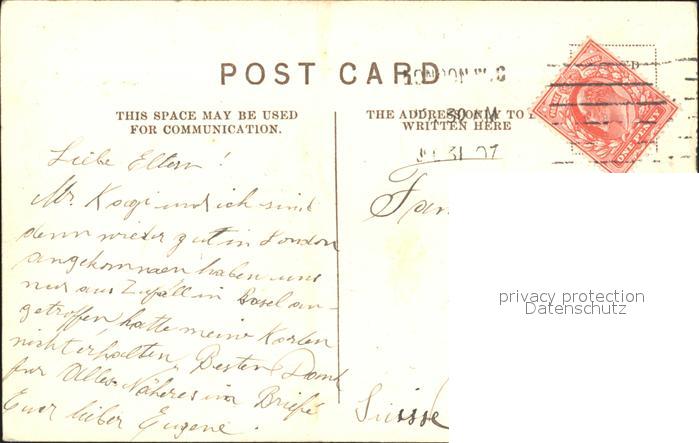 POST CARD
LONDON W.C
THIS SPACE MAY BE USED
FOR COMMUNICATION.
THE ADDRESS ONLY TO
WRITTEN HERE
30 M
31 07
ONE PENNY
Liebe Eltern!
Mr. Kägi und ich sind
denn wieder gut in London
angekommen haben uns
nur aus Zufall in Basel an-
getroffen, hatte meine Karten
nicht erhalten. Besten Dank
für Alles Näheres im Briefe
Euer lieber Eugene.
Fam
Suisse
privacy protection
Datenschutz